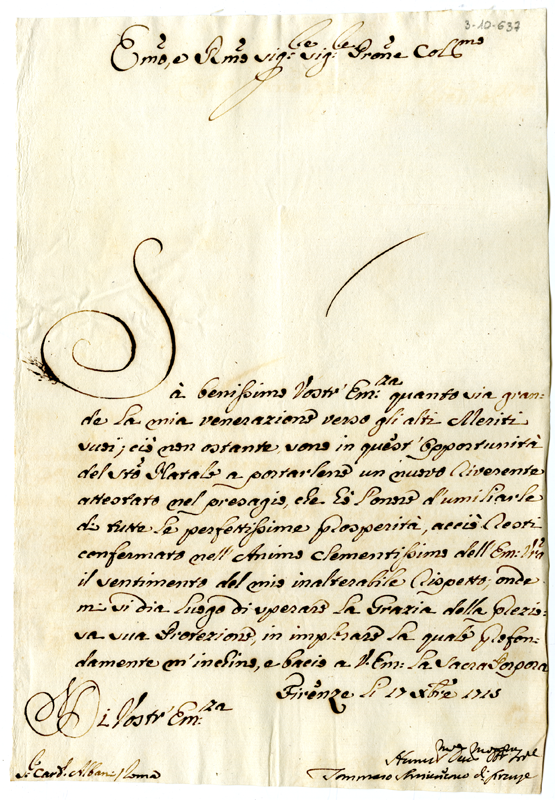 3-10-637
Em̃o, e Rm̃o Sig.re Sig.re Prõne Col.mo
Sà benissimo Vostr' Em:za quanto sia gran-
de la mia venerazione verso gli alti Meriti
suoi; ciò non ostante, sono in quest' Opportunità
del Sto Natale a portarlene un nuovo Riverente
attestato nel presagio, che hò l'onore d'umiliarle
di tutte le perfettissime prosperità, acciò resti
confermato nell' Animo clementissimo dell' Em: Vra
il sentimento del mio inalterabile Rispetto, onde
mi si dia luogo di sperare la Grazia della prezio-
sa sua Protezione, in implorare la quale profon-
damente m'inchino, e bacio a V. Em: la Sacra Porpora
Firenze li 17 Xbre 1715
Di Vostr' Em:za
Sr Card. Albani Roma
Tommaso di Firenze